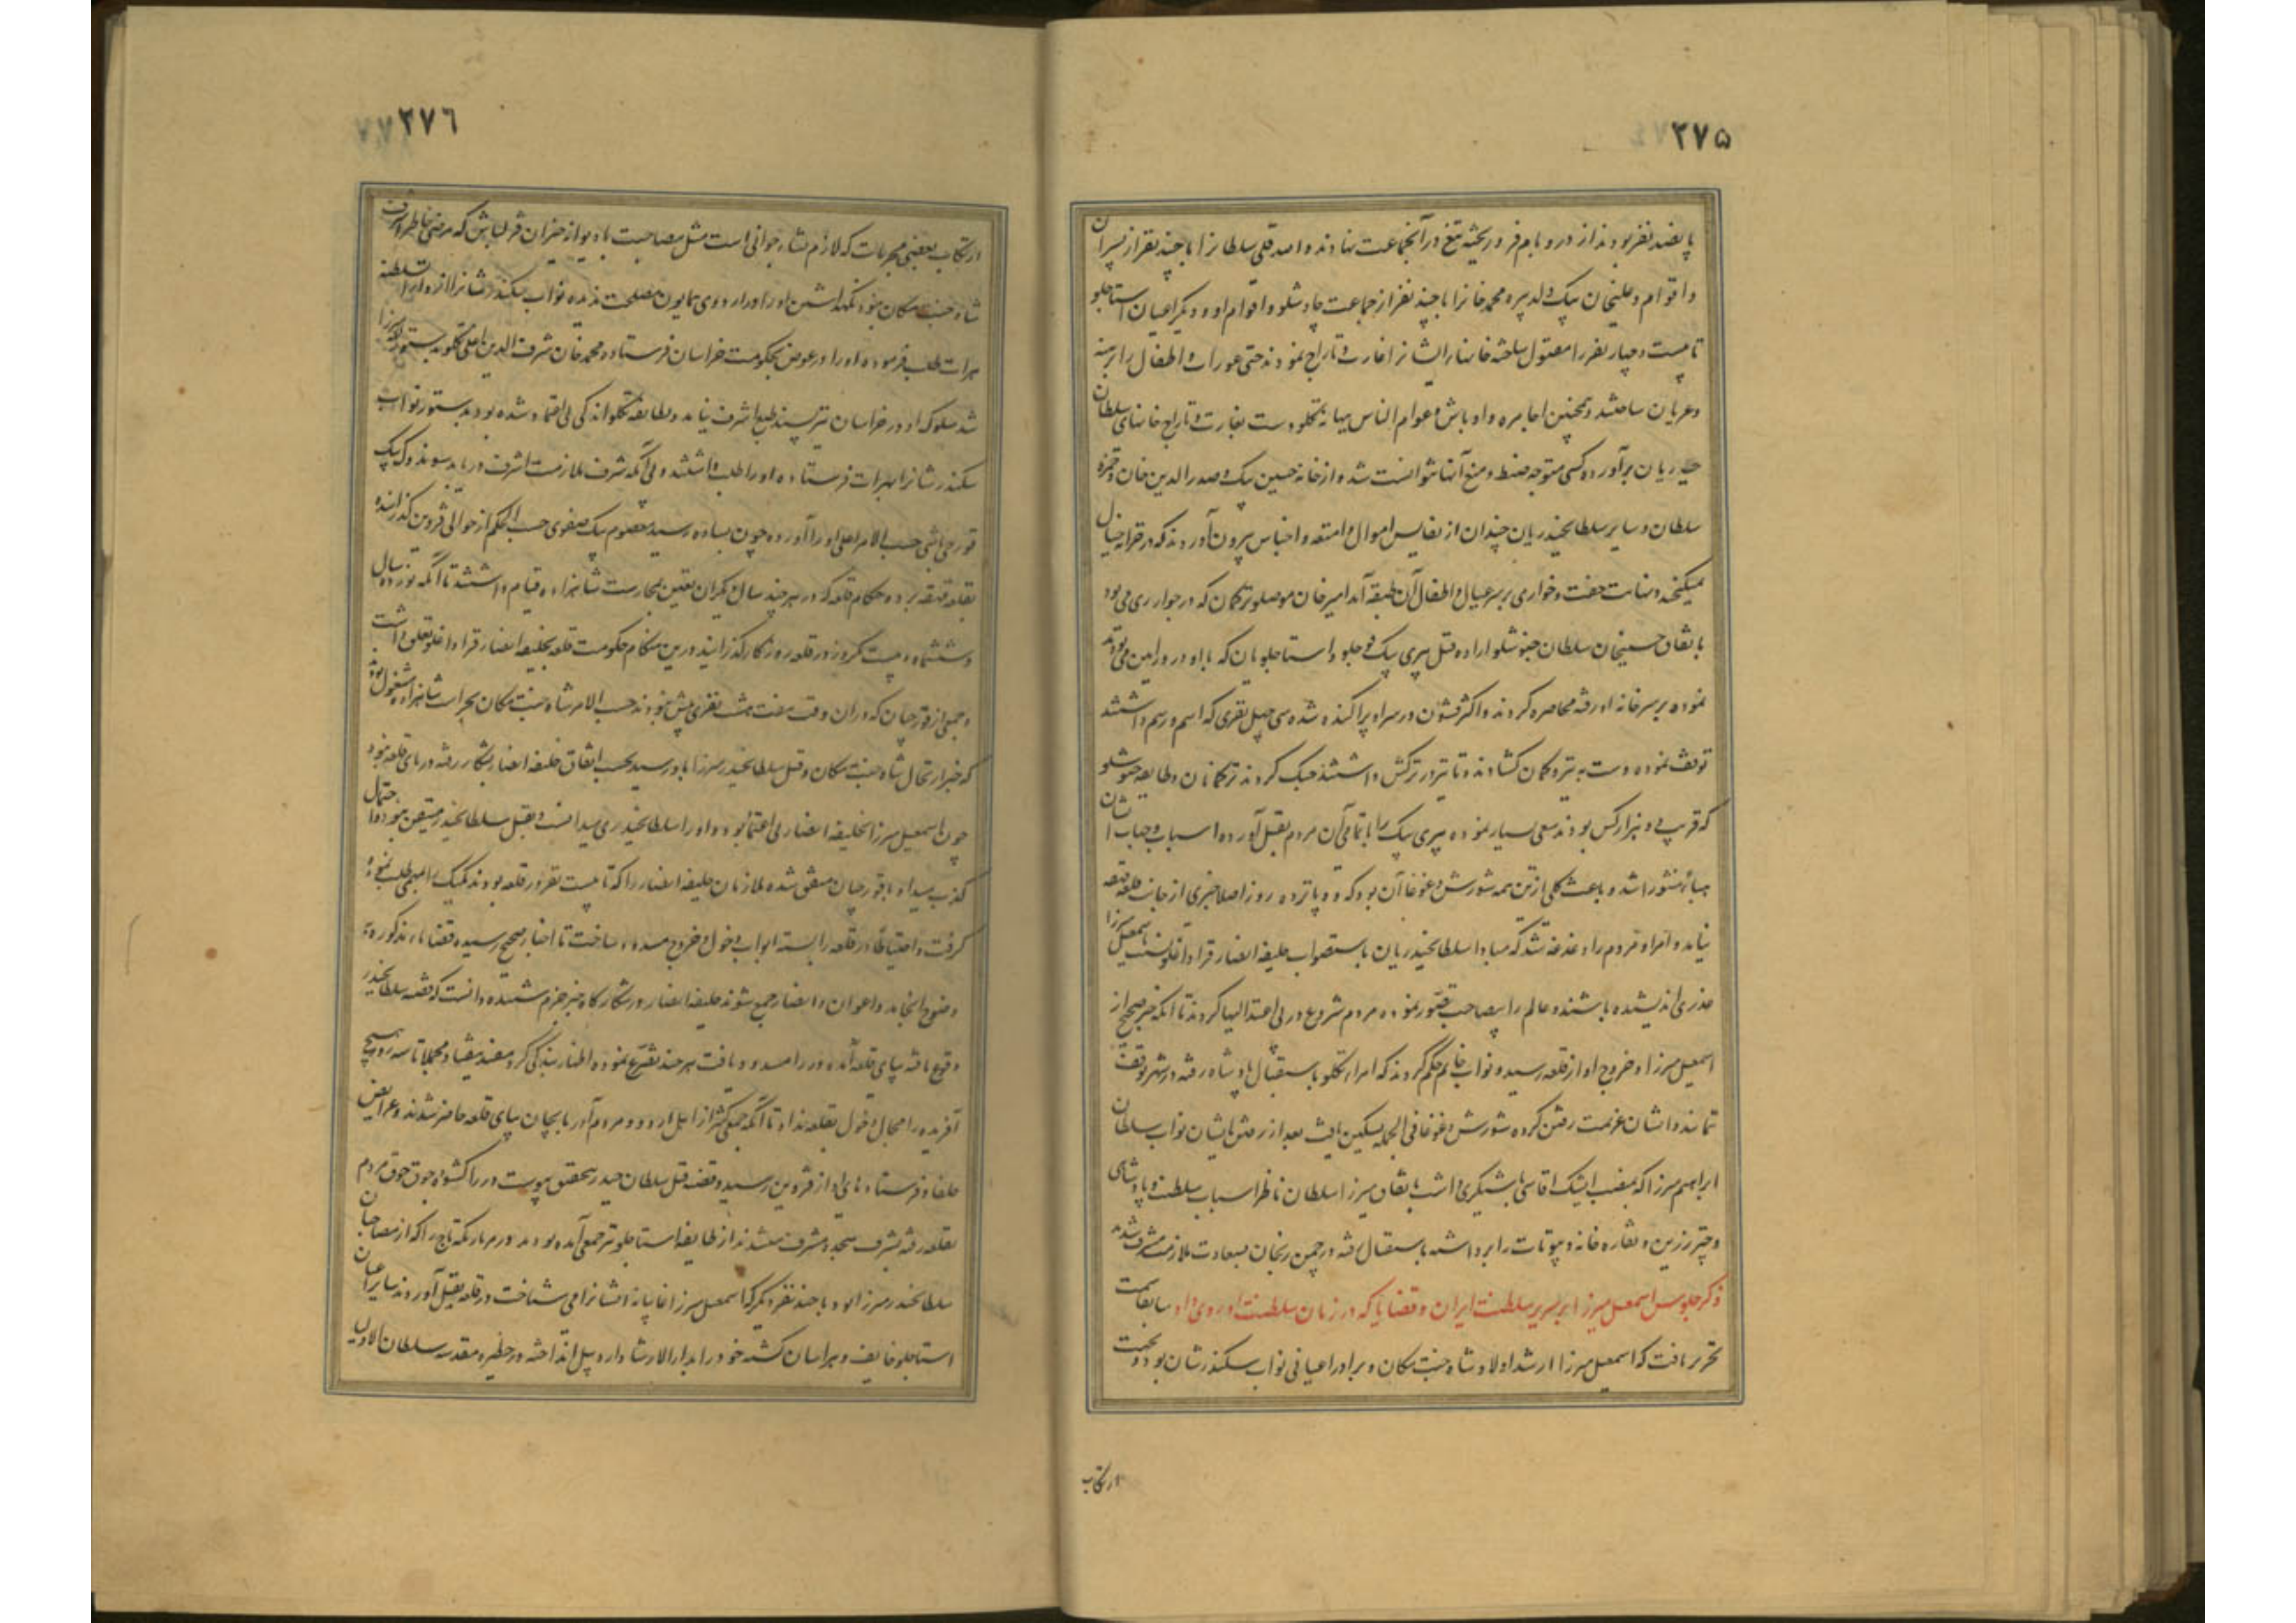 ۲۷۵
پانصد نفر بودند از در و بام فرو ریخته تیغ در آن جماعت نهادند و امد قلی سلطانرا با چند نفر از پسران
و اقوام و علیخان بیک ولد پیره محمد خانرا با چند نفر از جماعت چاوشلو و اقوام او و دیگر اعیان استاجلو
تا بیست و چهار نفر را مقتول ساخته خانهای ایشانرا غارت و تاراج نمودند حتی عورات و اطفال را برهنه
و عریان ساختند و همچنین اجامره و اوباش و عوام الناس ببهانه تکلو دست بغارت و تاراج خانهای سلطان
حیدریان برآورده کسی متوجه ضبط و منع آنها نتوانست شد و از خانه حسین بیک و صدرالدین خان و حمزه
سلطان و سایر سلطانحیدریان چندان از نفایس اموال و امتعه و اجناس بیرون آوردند که در خزانه خیال
نمیگنجد و نهایت خفت و خواری بر سر عیال و اطفال آن طبقه آمد امیر خان موصلو ترکمان که در جوار ری می بود
باتفاق حسینجان سلطان خنوشلو اراده قتل پیری بیک قوجلو و استاجلویان که با او در ورامین می بودند
نموده بر سر خانه او رفته محاصره کردند و اکثر قشون در سر او پراکنده شده سی چهل نفری که اسم و رسم داشتند
توقف نموده دست به تیر و کمان گشادند و تا تیر در ترکش داشتند جنگ کردند ترکمانان و طایفه خنوشلو
که قریب دو هزار کس بودند سعی بسیار نموده پیری بیک را با تمامی آن مردم بقتل آورده اسباب و جهات ایشان
هباء منثورا شد و باعث کلی ازین همه شورش و غوغا آن بود که ده پانزده روز اصلا خبری از جانب قلعه قهقهه
نیامد و امرا و مردم را دغدغه شد که مبادا سلطانحیدریان باستصواب خلیفه انصار قراداغلو نسبت باسمعیل میرزا
عذری اندیشیده باشند و عالم را بیصاحب تصور نموده مردم شروع در بی اعتدالیها کردند تا آنکه خبر صحیح از
اسمعیل میرزا و خروج او از قلعه رسید و نواب خانم حکم کردند که امراء تکلو باستقبال پادشاه رفته در شهر توقف
ننمایند و ایشان عزیمت رفتن کرده شورش و غوغا فی الجمله تسکین یافت بعد از رفتن ایشان نواب سلطان
ابراهیم میرزا که بمنصب ایشیک اقاسی باشیگری داشت باتفاق میرزا سلطان ناظر اسباب سلطنت و پادشاهی
و چتر زرین و نقاره خانه و بیوتات را برداشته باستقبال رفته در چمن زنجان بسعادت ملازمت مشرف شدند
ذکر جلوس اسمعیل میرزا بر سریر سلطنت ایران و قضایا که در زمان سلطنت او روی داد سابقا سمت
تحریر یافت که اسمعیل میرزا ارشد اولاد شاه جنت مکان و برادر اعیانی نواب سکندر شان بود و بجهت
ارتکاب
۲۷۶
ارتکاب بعضی مجرمات که لازم نشاء جوانی است مثل مصاحبت با دیوانه خیزان قزلباش که مرضی خاطر اشرف
شاه جنت مکان نبود نگهداشتن او را در اردوی همایون مصلحت ندیده نواب سکندر شانرا از دارالسلطنه
هرات طلب فرموده او را در عوض بحکومت خراسان فرستاد و محمد خان شرف الدین اغلی تکلو بدستور لله میرزا
شد سلوک او در خراسان نیز پسند طبع اشرف نیامد و بطایفه تکلو اندکی بی اعتماد شده بودند بدستور نواب
سکندر شانرا بهرات فرستاده او را طلب داشتند و بی آنکه شرف ملازمت اشرف دریابد سوندوک بیک
قورچی باشی حسب الامر اعلی او را آورده چون بساوه رسید معصوم بیک صفوی حسب الحکم از حوالی قزوین گذرانیده
بقلعه قهقهه برد و حکام قلعه که در هر چند سال دیگران تعیین بحارست شاهزاده قیام داشتند تا آنکه نوزده سال
و ششماه و بیست و یکروز در قلعه روزگار گذرانید درین هنگام حکومت قلعه بخلیفه انصار قراداغلو تعلق داشت
و جمعی از قورچیان که در ان وقت هفت هشت نفری بیش نبودند حسب الامر شاه جنت مکان بحراست شاهزاده مشغول بودند
که خبر ارتحال شاه جنت مکان و قتل سلطانحیدر میرزا باو رسید بحسب اتفاق خلیفه انصار بشکار رفته در پای قلعه نبود
چون اسمعیل میرزا بخلیفه انصار بی اعتماد بود و او را سلطانحیدری میدانست و بقتل سلطانحیدر متیقن نبود و احتمال
کذب میداد با قورچیان متفق شده ملازمان خلیفه انصار را که تا بیست نفر در قلعه بودند یک یک را ببهی طلب نموده
گرفت و احتیاطا در قلعه را بسته ابواب دخول و خروج مسدود ساخت تا اخبار صحیح رسیده قضایاء مذکوره
وضوح انجامد و اعوان و انصار جمع شوند خلیفه انصار در شکارگاه خبر جزم شنیده دانست که قضیه سلطانحیدر
وقوع یافته بپای قلعه آمده در را مسدود یافت هر چند تضرع نموده اظهار بندگی کرد مفید نیفتاد و مجملا تا سه روز هیچ
آفریده را مجال دخول بقلعه نداد تا آنکه جمعی کثیر از اهل اردو و مردم آذربایجان بپای قلعه حاضر شدند و عرایض
خلفا و فرستاده های او از قزوین رسید و قضیه قتل سلطان حیدر بتحقق پیوست در را گشوده جوق جوق مردم
بقلعه رفته بشرف سجده مشرف میشدند از طایفه استاجلو نیز جمعی آمده بودند
سلطانحیدر میرزا بود با چند نفر دیگر که اسمعیل میرزا غایبانه ایشانرا می شناخت در قلعه بقتل آوردند سایر اعیان
استاجلو خایف و هراسان گشته خود را بدارالارشاد اردبیل انداخته در حظیره مقدسه سلطان الاولیا